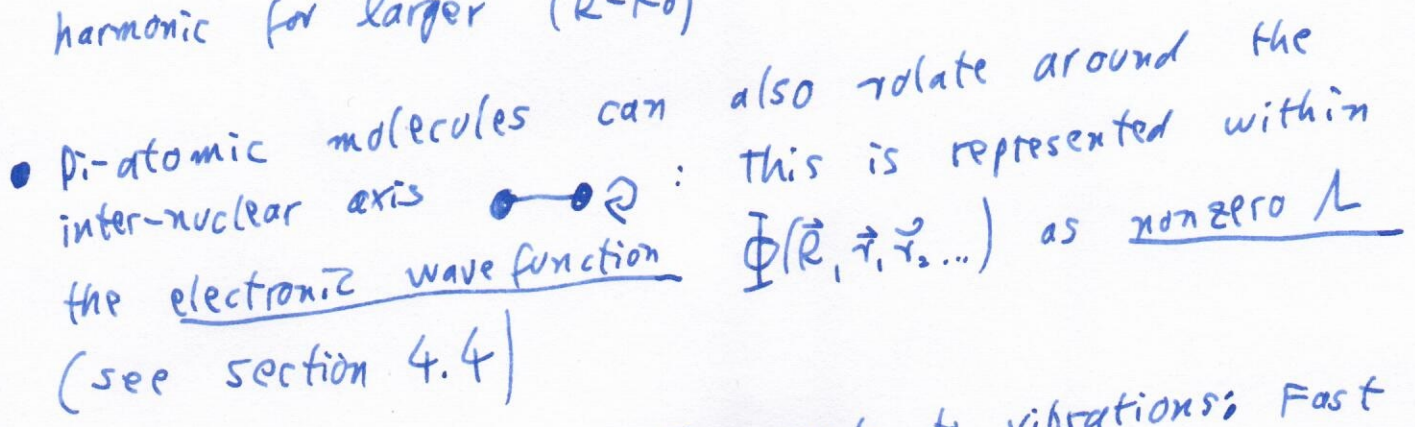 harmonic for larger (R-R₀)
• Di-atomic molecules can also rotate around the
inter-nuclear axis : This is represented within
the electronic wavefunction Φ(R⃗, r⃗₁ r⃗₂ ...) as nonzero Λ
(see section 4.4)
vibrations: Fast